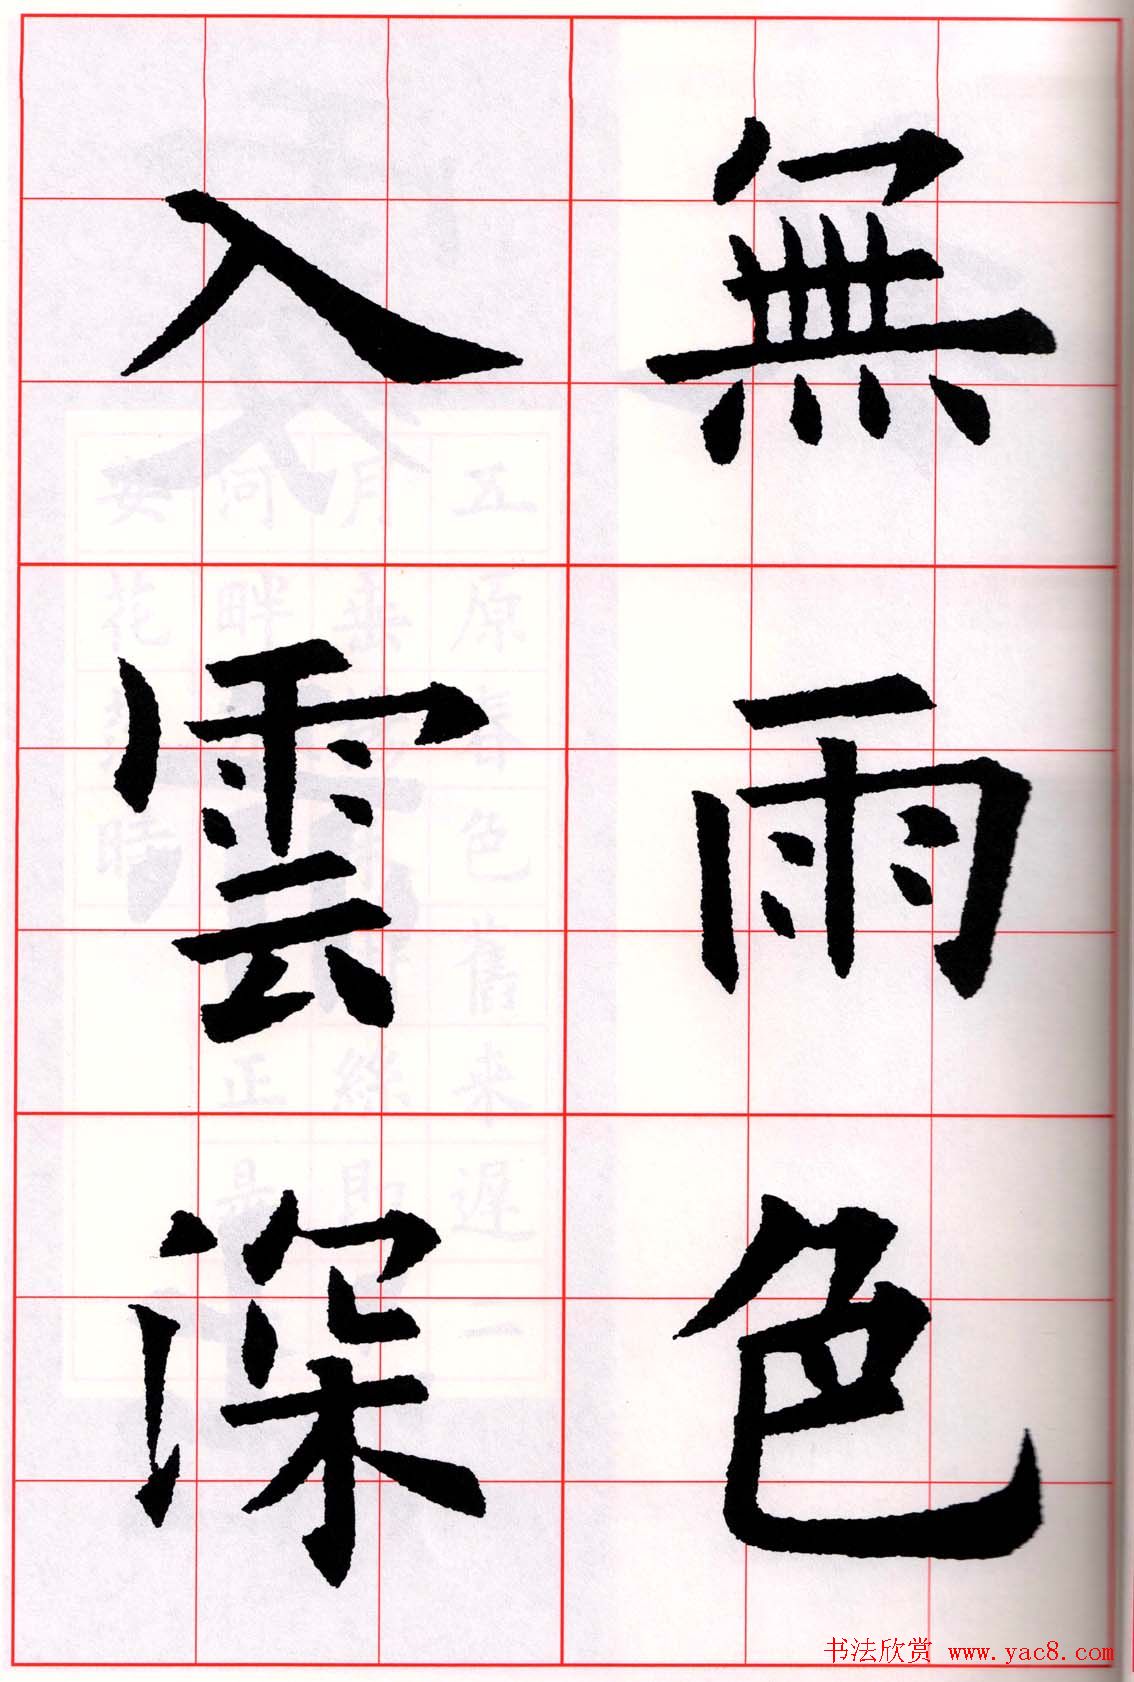 無雨色
入雲深
书法欣赏 www.yac8.com